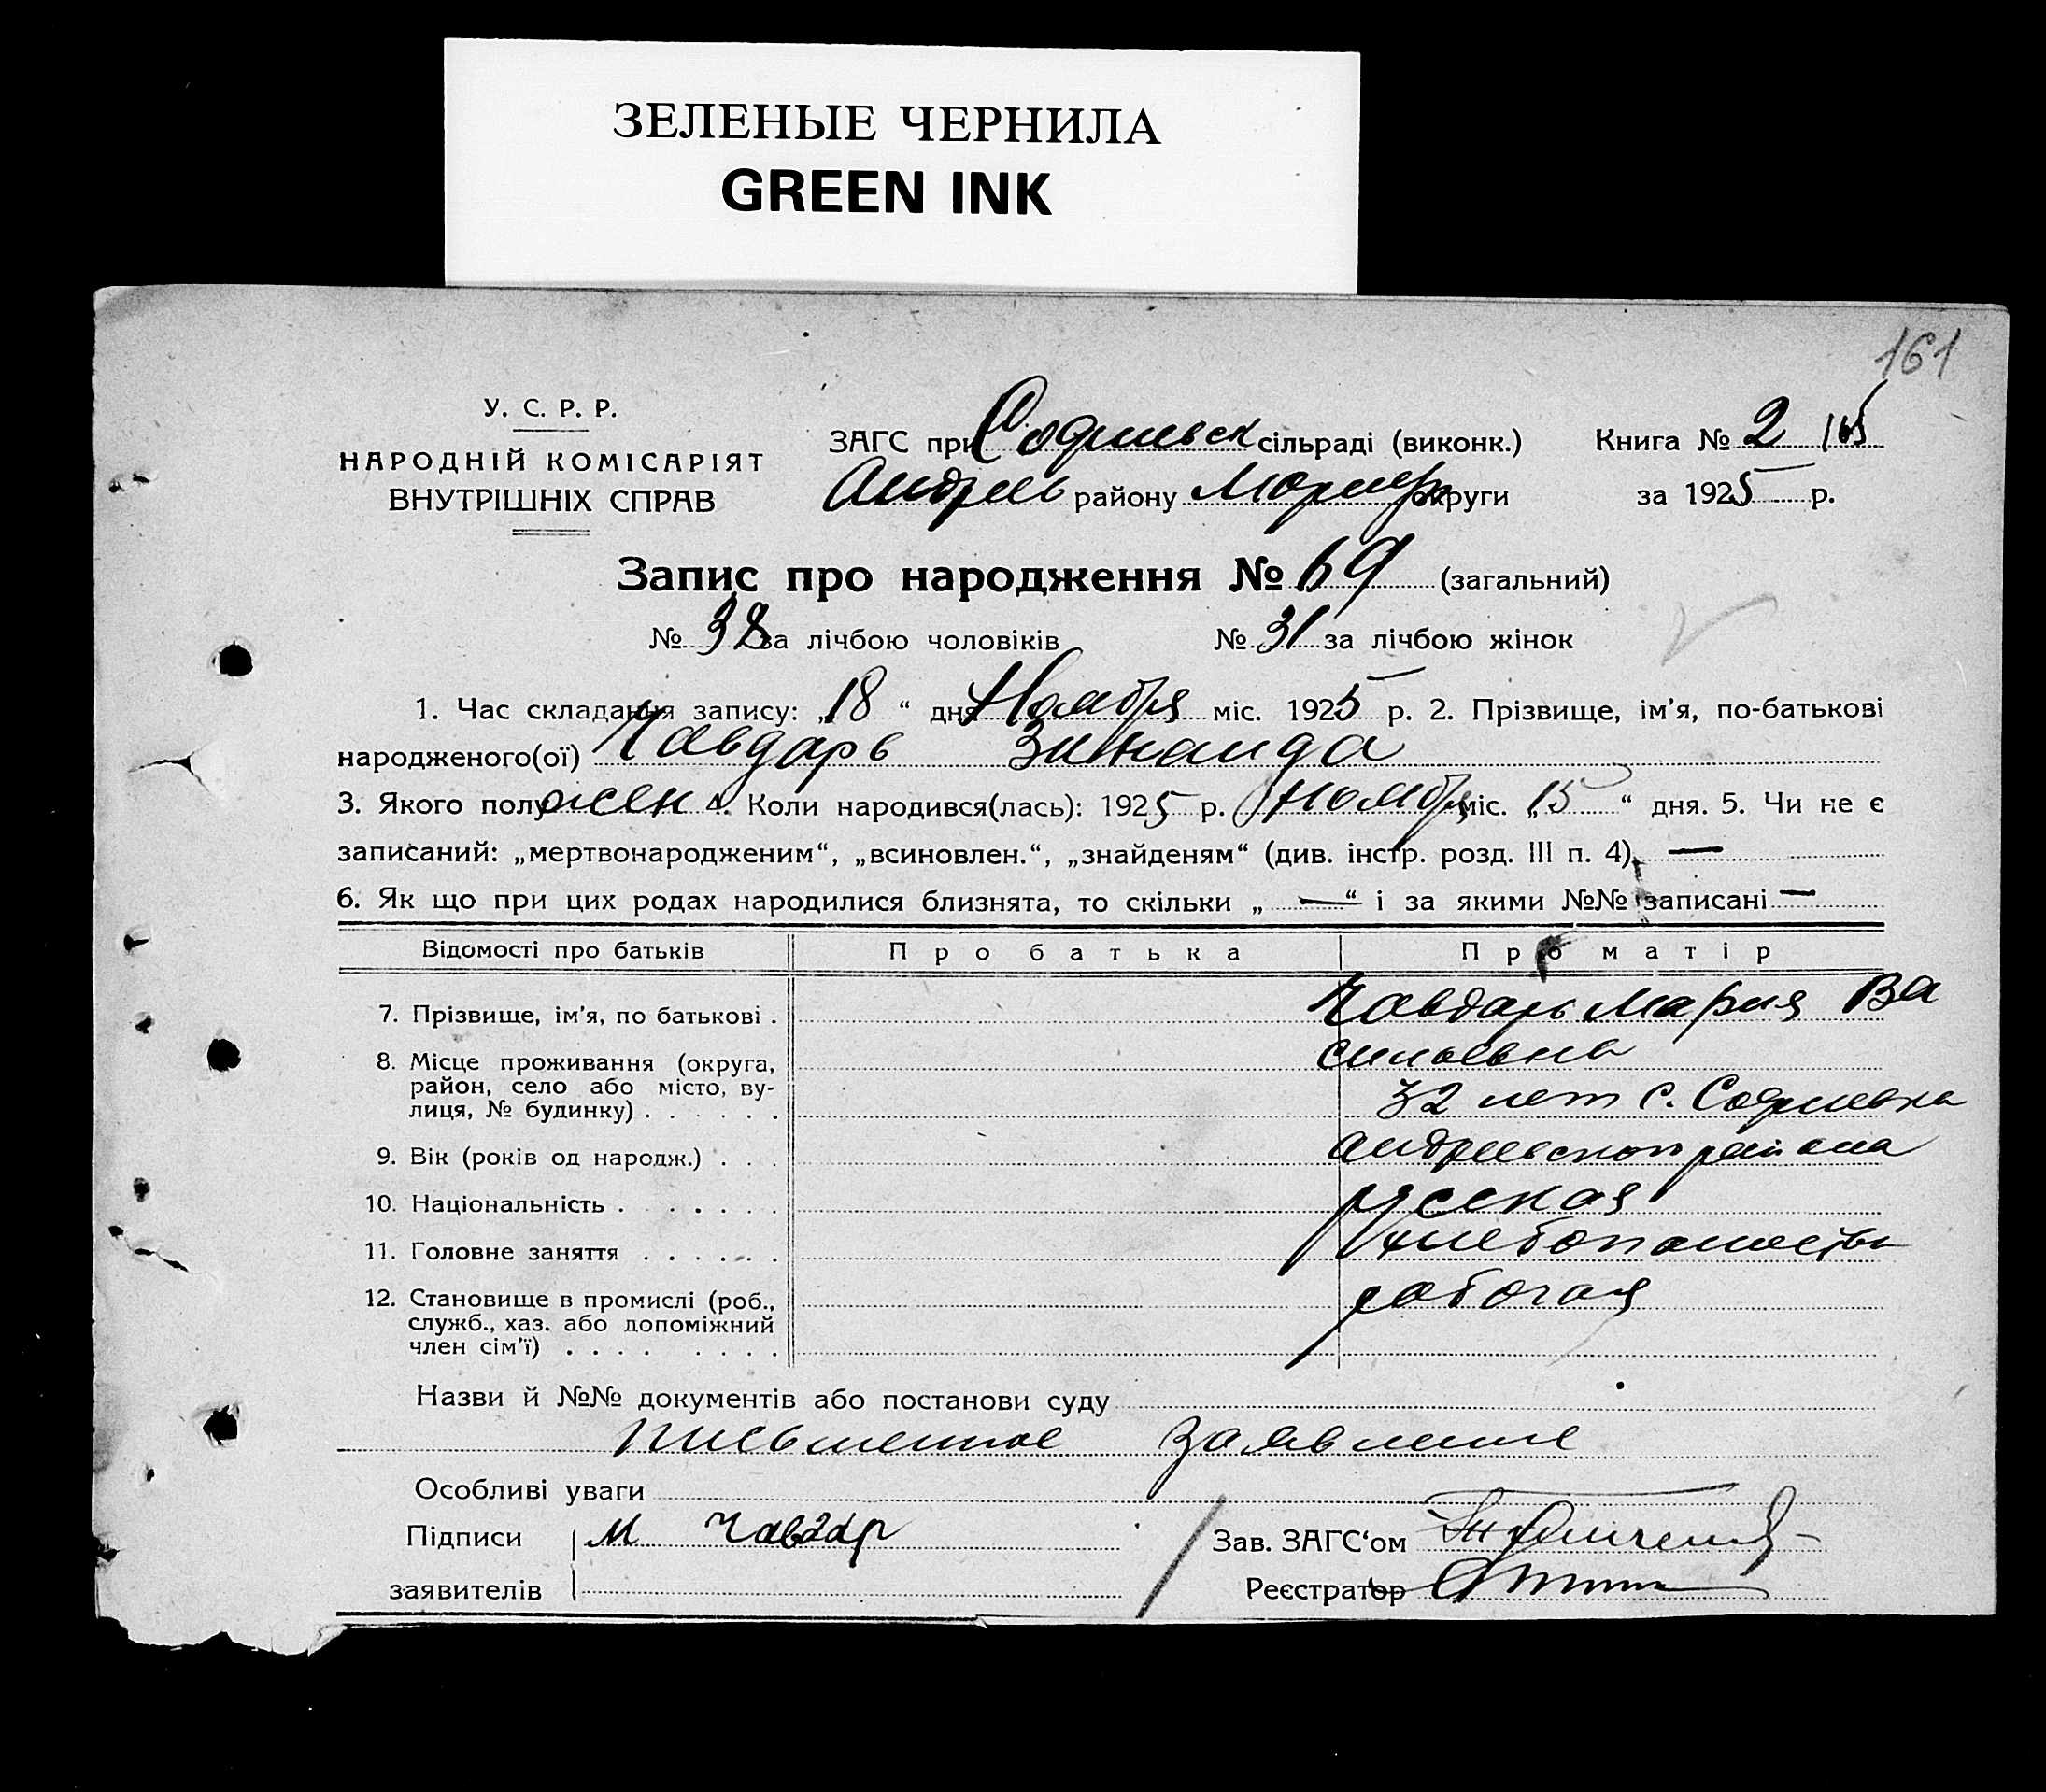 ЗЕЛЕНЫЕ ЧЕРНИЛА
GREEN INK
161
У. С. Р. Р.
НАРОДНІЙ КОМІСАРІЯТ
ВНУТРІШНІХ СПРАВ
ЗАГС при Софиевск сільраді (виконк.) Книга № 2 165
Андреев району Мариуп округи за 1925 р.
Запис про народження № 69 (загальний)
№ 38 за лічбою чоловіків № 31 за лічбою жінок
1. Час складання запису: „18“ дня Ноября міс. 1925 р. 2. Прізвище, ім’я, по-батькові
народженого(ої) Чавдарь Зинаида
3. Якого полу жен 4. Коли народився(лась): 1925 р. Ноября міс. „15“ дня. 5. Чи не є
записаний: „мертвонародженим“, „всиновлен.“, „знайденям“ (див. інстр. розд. III п. 4) —
6. Як що при цих родах народилися близнята, то скільки „—“ і за якими №№ записані —
Відомості про батьків Про батька Про матір
7. Прізвище, ім’я, по батькові . Чавдарь Мария Ва
сильевна
8. Місце проживання (округа,
район, село або місто, ву-
лиця, № будинку) . . . . . . 32 лет с. Софиевка
9. Вік (років од народж.) . . . Андреевского района
10. Національність . . . . . . русская
11. Головне заняття . . . . . . хлебопашество
12. Становище в промислі (роб.,
служб., хаз. або допоміжний
член сім’ї) . . . . . . . . рабочая
Назви й №№ документів або постанови суду
письменное заявление
Особливі уваги
Підписи М Чавдар Зав. ЗАГС‘ом
заявителів Реєстратор